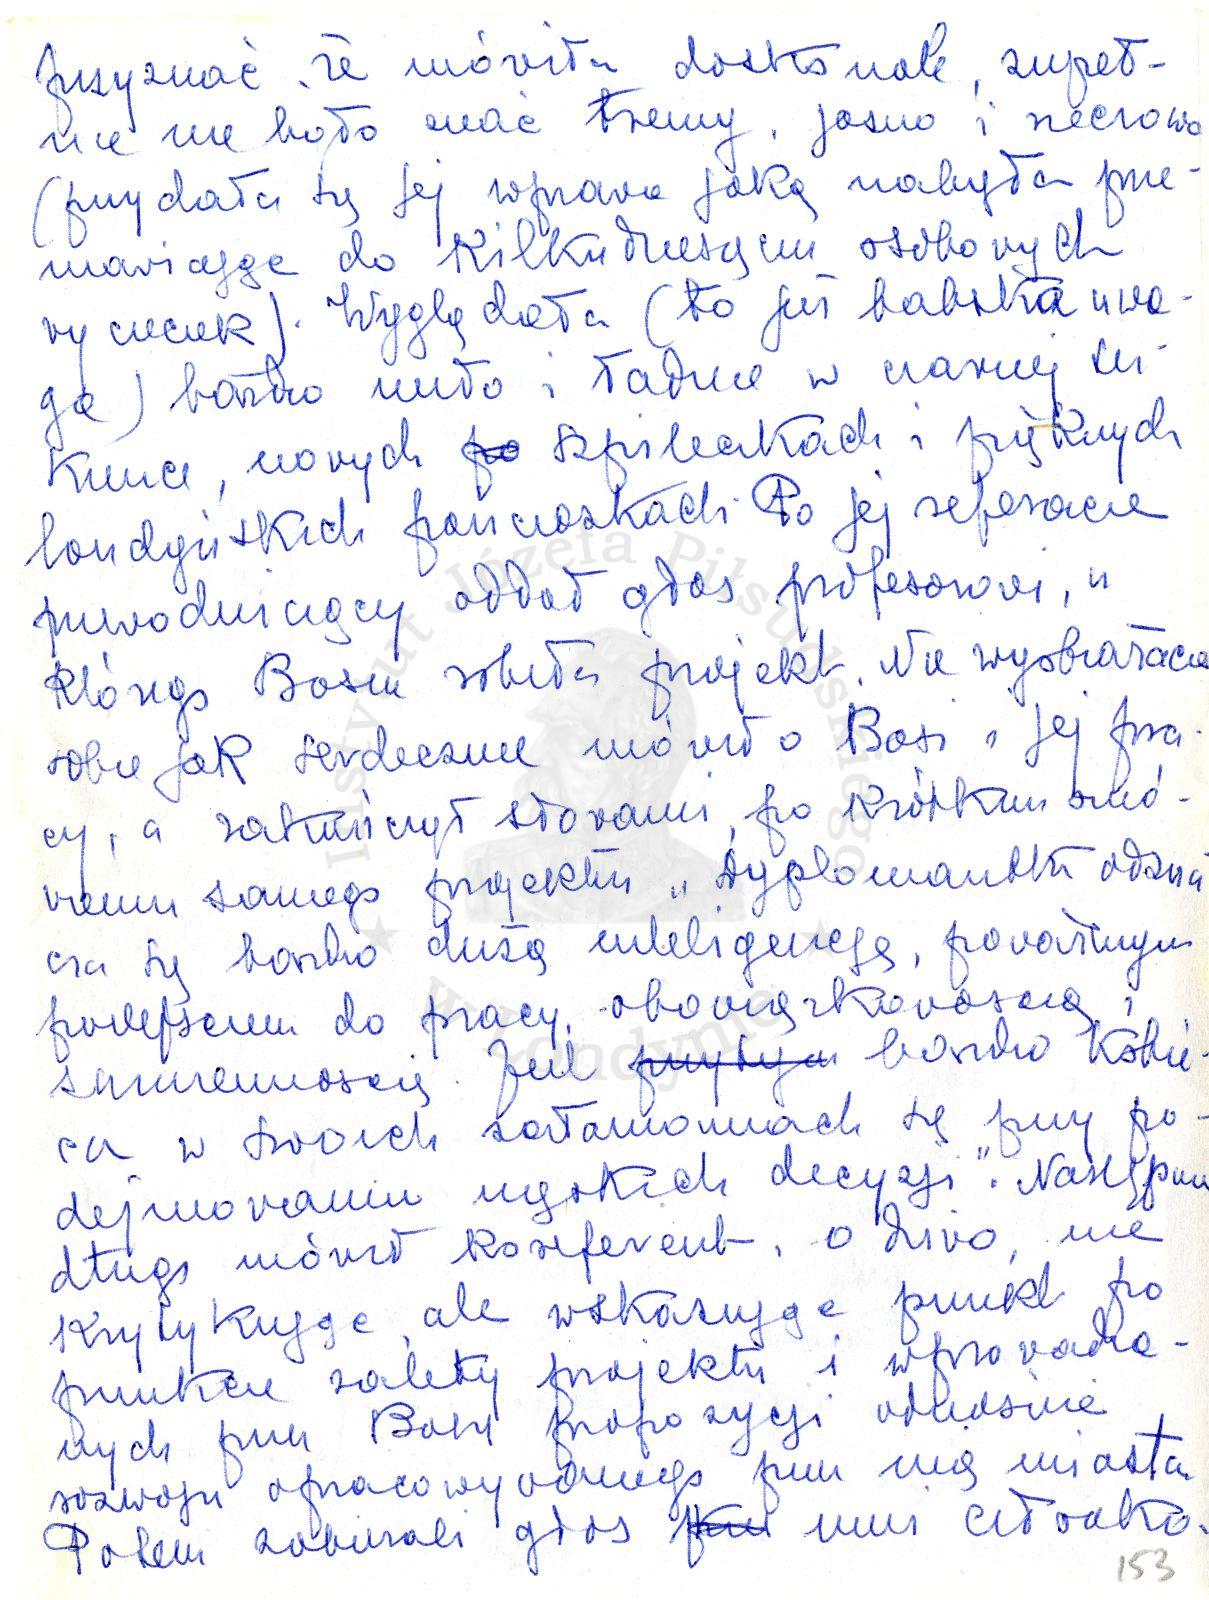 przyznać, że mówiła doskonale, zupeł-
nie nie było znać tremy, jasno i rzeczowo
(przydała się jej wprawa jaką nabyła prze-
mawiając do kilkudziesięciu osobowych
wycieczek). Wyglądała (to już babska uwa-
ga) bardzo miło i ładnie w czarnej su-
kience, nowych po szpileczkach i pięknych
londyńskich pończoszkach. Po jej referacie
przewodniczący oddał głos profesorowi, u
którego Basia robiła projekt. Nie wyobrażacie
sobie jak serdecznie mówił o Basi i jej pra-
cy, a zakończył słowami, po krótkim omó-
wieniu samego projektu „dyplomantka odzna
cza się bardzo dużą inteligencją, poważnym
podejściem do pracy, obowiązkowością i
sumiennością. Jest przytym bardzo kobie-
ca w swoich załamaniach się przy po-
dejmowaniu męskich decyzji". Następnie
długo mówił koreferent, o dziwo, nie
krytykując, ale wskazując punkt po
punkcie zalety projektu i wprowadzo-
nych przez Basię propozycji odnośnie
rozwoju opracowywanego przez nią miasta.
Potem zabierali głos inni członko-
153
Instytut Józefa Piłsudskiego
w Londynie